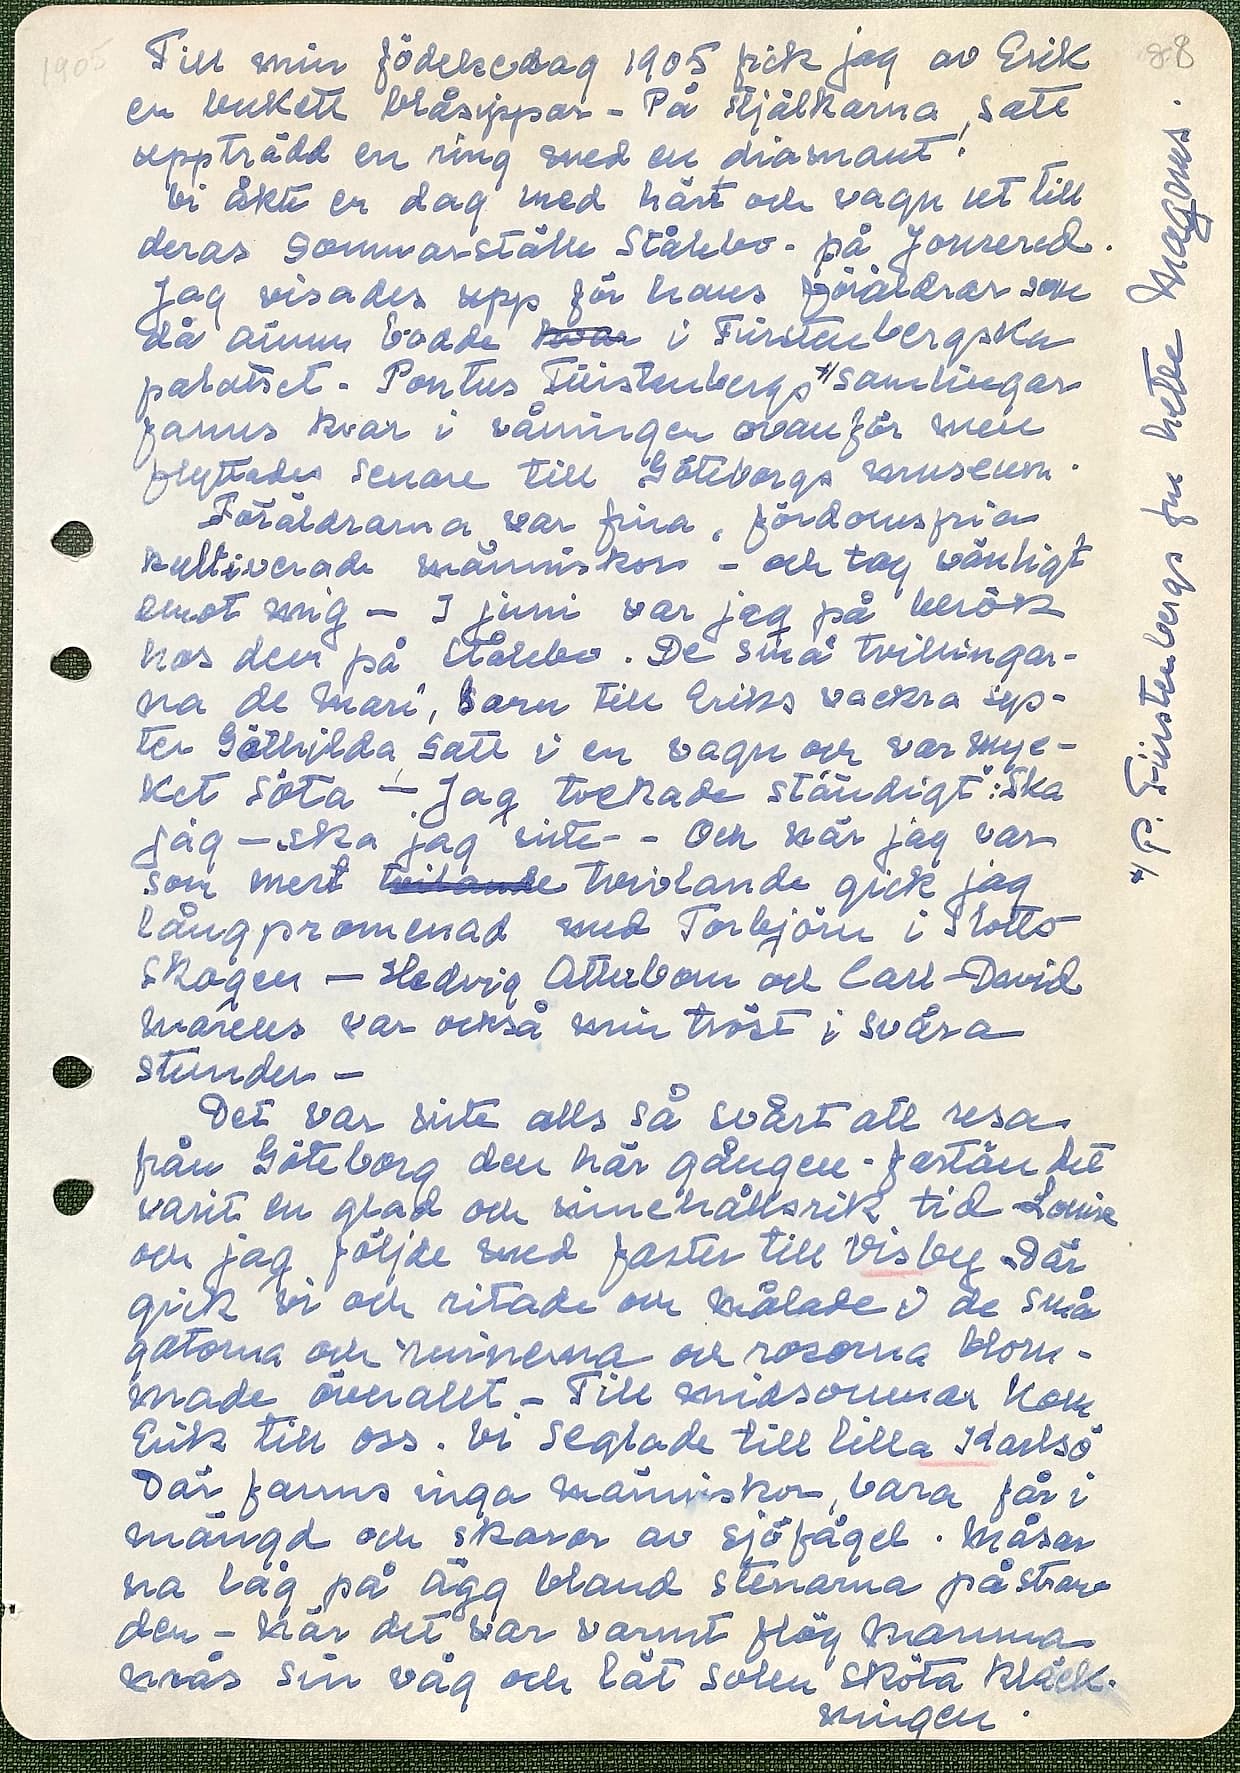 1905
88
Till min födelsedag 1905 fick jag av Erik
en bukett blåsippor - På stjälkarna satt
uppträdd en ring med en diamant!
Vi åkte en dag med häst och vagn ut till
deras sommarställe Ståhlebo - på Jonsered.
Jag visades upp för hans föräldrar som
då ännu bodde kvar i Fürstenbergska
palatset. Pontus Fürstenbergs */ samlingar
fanns kvar i våningen ovanför men
flyttades senare till Göteborgs museum.
Föräldrarna var fina, fördomsfria
kultiverade människor - och tog vänligt
emot mig - I juni var jag på besök
hos dem på Ståhlebo. De små tvillingar-
na de Maré, barn till Eriks vackra sys-
ter Göthilda satt i en vagn och var myc-
ket söta - Jag tvekade ständigt: "Ska
jag - ska jag inte - - Och när jag var
som mest tvivlande gick jag
långpromenad med Torbjörn i Slotts
skogen - Hedvig Atterbom och Carl-David
Marcus var också min tröst i svåra
stunder -
Det var inte alls så svårt att resa
från Göteborg den här gången - fastän det
varit en glad och innehållsrik tid Louise
och jag följde med faster till Visby - Där
gick vi och ritade och målade i de små
gatorna och ruinerna och rosorna blom-
made överallt - Till midsommar kom
Erik till oss. Vi seglade till lilla Karlsö
Där fanns inga människor, bara får i
mängd och skaror av sjöfågel. Måsar
na låg på ägg bland stenarna på stran
den - När det var varmt flög mamma
mås sin väg och lät solen sköta kläck-
ningen.
*/ P. Fürstenbergs fru hette Magnus.